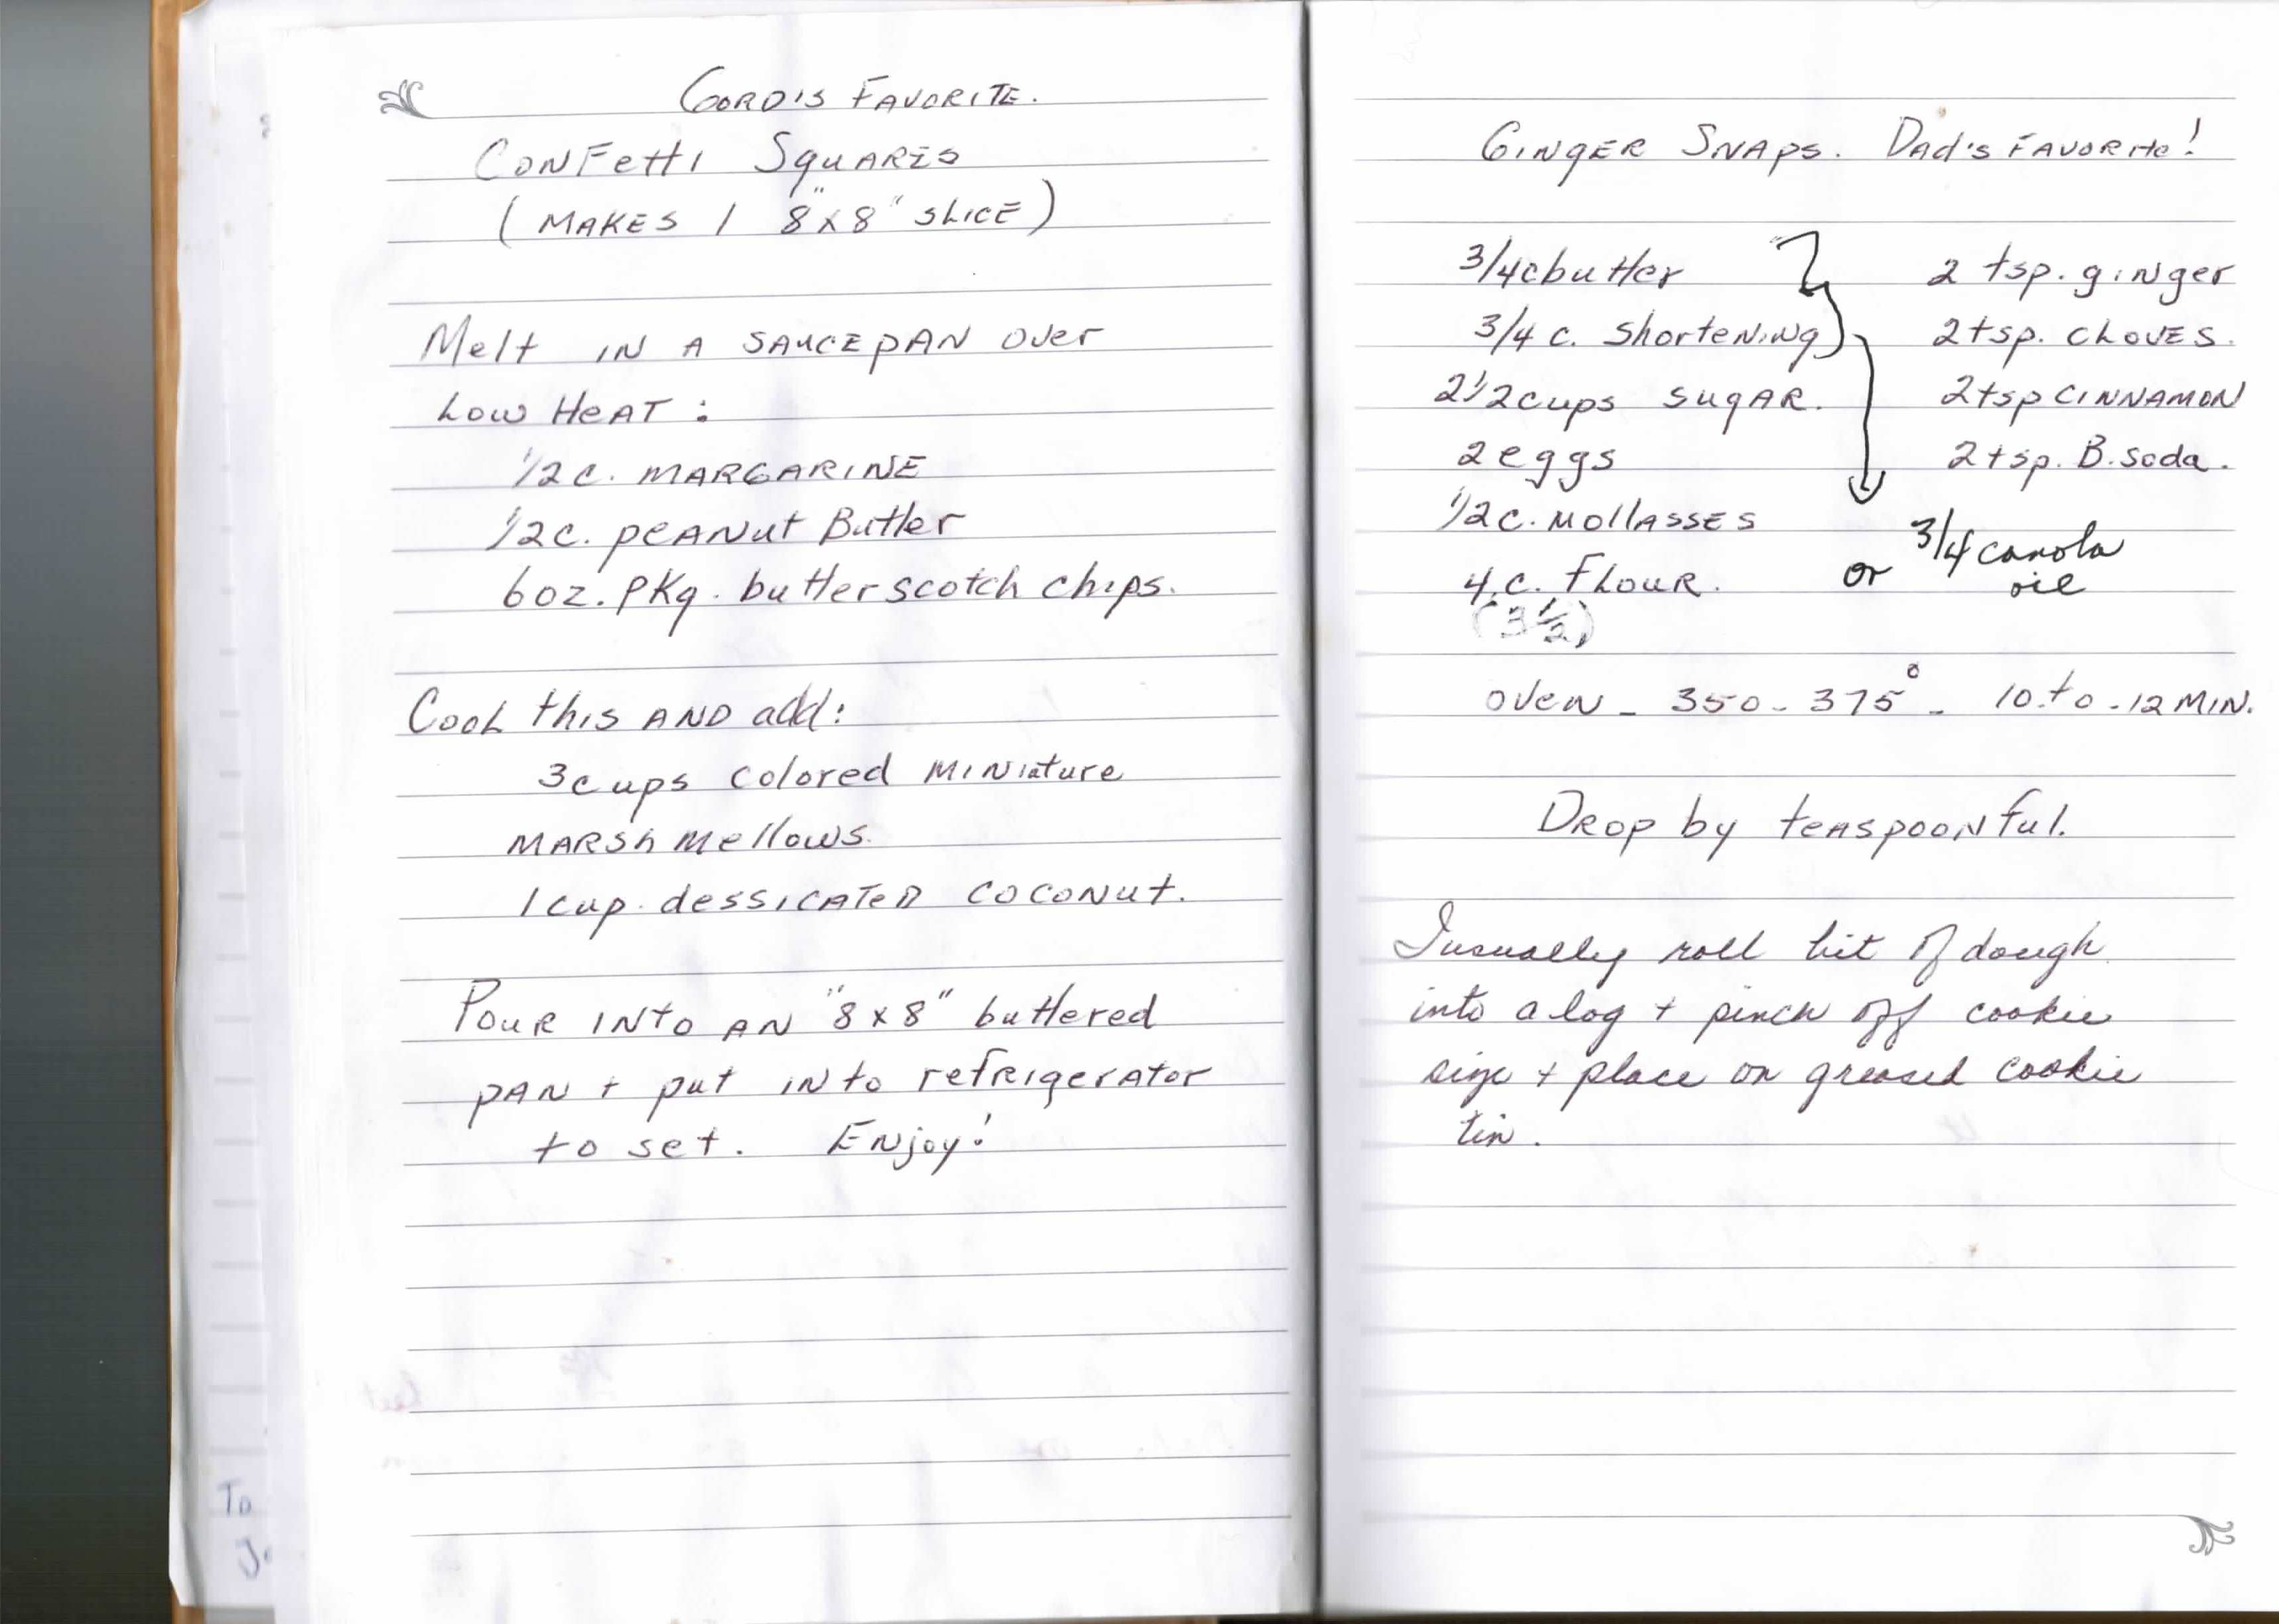 GORD'S FAVORITE.
CONFETTI SQUARES
(MAKES 1 8"x8" SLICE)
Melt IN A SAUCEPAN over
LOW HEAT:
1/2 C. MARGARINE
1/2 C. PEANUT Butter
6 oz. PKg. butterscotch chips.
Cool this AND add:
3 cups colored MINiature
MARSh Mellows.
1 cup dessicATED COCONUT.
POUR INTO AN "8x8" buttered
PAN + put INto refrigerator
to set. ENjoy!
GINGER SNAPS. Dad's FAVORite!
3/4 c butter
3/4 c. ShorteNiNg)
2 1/2 cups SUGAR.
2 eggs
1/2 C. MOllASSES
4. C. FLOUR.
(3 1/2)
2 tsp. giNger
2 tsp. CLOVES.
2 tsp CINNAMON
2 tsp. B. soda.
or 3/4 canola
oil
oveN - 350 - 375° - 10 to - 12 MIN.
DROP by teASPOONful.
I usually roll bit of dough
into a log + pinch off cookie
size + place on greased cookie
tin.
To